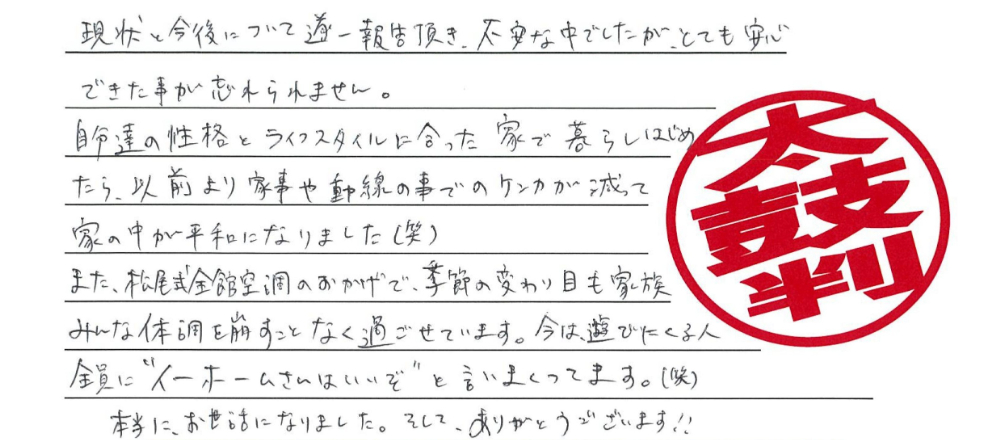 現状と今後について逐一報告頂き、不安な中でしたが、とても安心
できた事が忘れられません。
自分達の性格とライフスタイルに合った家で暮らしはじめ
たら、以前より家事や動線の事でのケンカが減って
家の中が平和になりました(笑)
また、松尾式全館空調のおかげで、季節の変わり目も家族
みんな体調を崩すことなく過ごせています。今は、遊びにくる人
全員に"イーホームさんはいいぞ"と言いまくってます。(笑)
本当に、お世話になりました。そして、ありがとうございます!!
太鼓判